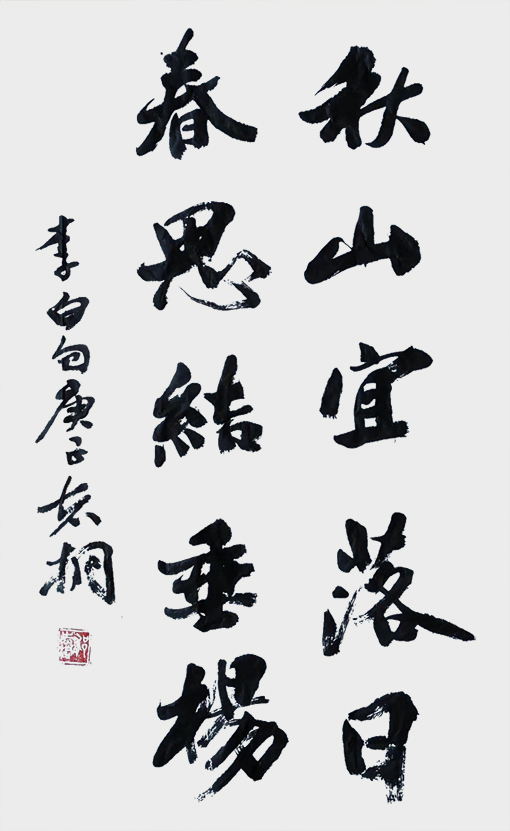 秋山宜落日
春思結垂楊
李白句庚子友桐